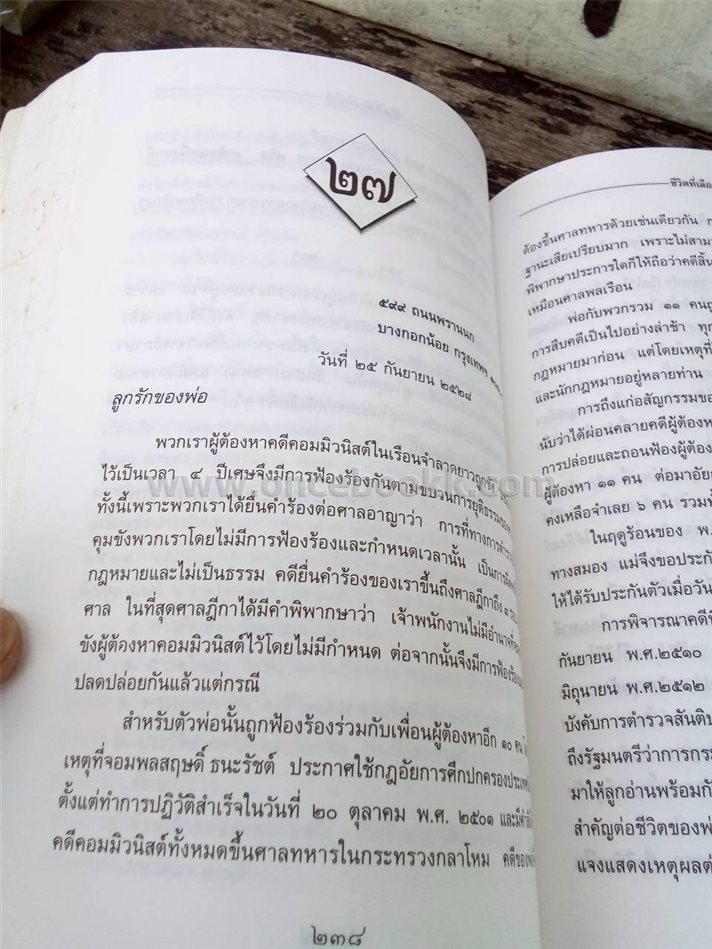 ๒๗
๕๙๙ ถนนพรานนก
บางกอกน้อย กรุงเทพ
วันที่ ๒๕ กันยายน ๒๕๒๘
ลูกรักของพ่อ
พวกเราผู้ต้องหาคดีคอมมิวนิสต์ในเรือนจำลาดยาวถูก
ไว้เป็นเวลา ๔ ปีเศษจึงมีการฟ้องร้องกันตามขบวนการยุติธรรม
ทั้งนี้เพราะพวกเราได้ยื่นคำร้องต่อศาลอาญาว่า การที่ทางการ
คุมขังพวกเราโดยไม่มีการฟ้องร้องและกำหนดเวลานั้น เป็นการ
กฎหมายและไม่เป็นธรรม คดียื่นคำร้องของเราขึ้นถึงศาลฎีกาถึง ๓
ศาล ในที่สุดศาลฎีกาได้มีคำพิพากษาว่า เจ้าพนักงานไม่มีอำนาจ
ขังผู้ต้องหาคอมมิวนิสต์ไว้โดยไม่มีกำหนด ต่อจากนั้นจึงมีการฟ้องร้อง
ปลดปล่อยกันแล้วแต่กรณี
สำหรับตัวพ่อนั้นถูกฟ้องร้องร่วมกับเพื่อนผู้ต้องหาอีก ๑๐ คน
เหตุที่จอมพลสฤษดิ์ ธนะรัชต์ ประกาศใช้กฎอัยการศึกปกครองประเทศ
ตั้งแต่ทำการปฏิวัติสำเร็จในวันที่ ๒๐ ตุลาคม พ.ศ. ๒๕๐๑ และมีคำสั่ง
คดีคอมมิวนิสต์ทั้งหมดขึ้นศาลทหารในกระทรวงกลาโหม คดีของ
๒๓๘
ชีวิตที่เลือ
ต้องขึ้นศาลทหารด้วยเช่นเดียวกัน ก
ฐานะเสียเปรียบมาก เพราะไม่สาม
พิพากษาประการใดก็ให้ถือว่าคดีสิ้น
เหมือนศาลพลเรือน
พ่อกับพวกรวม ๑๑ คนถู
การสืบคดีเป็นไปอย่างล่าช้า ทุก
กฎหมายมาก่อน แต่โดยเหตุที่
และนักกฎหมายอยู่หลายท่าน
การถึงแก่อสัญกรรมของ
นับว่าได้ผ่อนคลายคดีผู้ต้องหา
การปล่อยและถอนฟ้องผู้ต้อง
ผู้ต้องหา ๑๑ คน ต่อมาอัย
คงเหลือจำเลย ๖ คน รวมทั้
ในฤดูร้อนของ พ.
ทางสมอง แม่จึงขอประกั
ให้ได้รับประกันตัวเมื่อวัน
การพิจารณาคดีนี้
กันยายน พ.ศ.๒๕๑๐
มิถุนายน พ.ศ.๒๕๑๒
บังคับการตำรวจสันติบ
ถึงรัฐมนตรีว่าการกระ
มาให้ลูกอ่านพร้อมกั
สำคัญต่อชีวิตของพ่
แจงแสดงเหตุผลต่
www.oncebookk.com